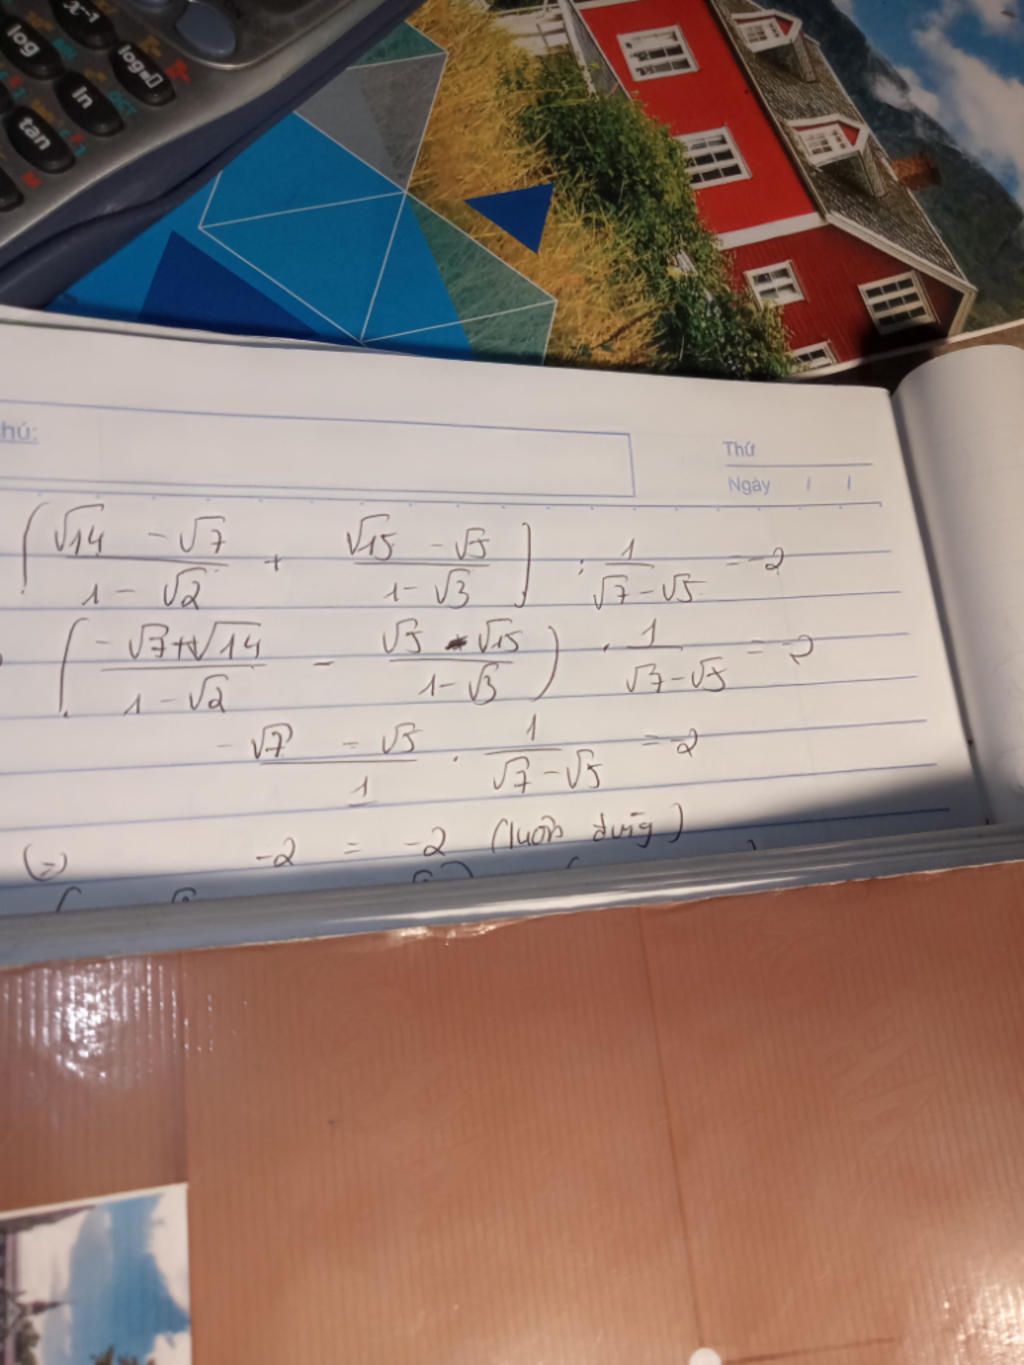 x⁻¹
log
log■□
ln
tan
hú:
Thứ
Ngày / /
(√14 - √7 / 1 - √2 + √15 - √5 / 1 - √3) : 1 / √7 - √5 = -2
(-√7 + √14 / 1 - √2 - √5 - √15 / 1 - √3) . 1 / √7 - √5 = -2
-√7 - √5 / 1 . 1 / √7 - √5 = -2
(=) -2 = -2 (luôn đúng)